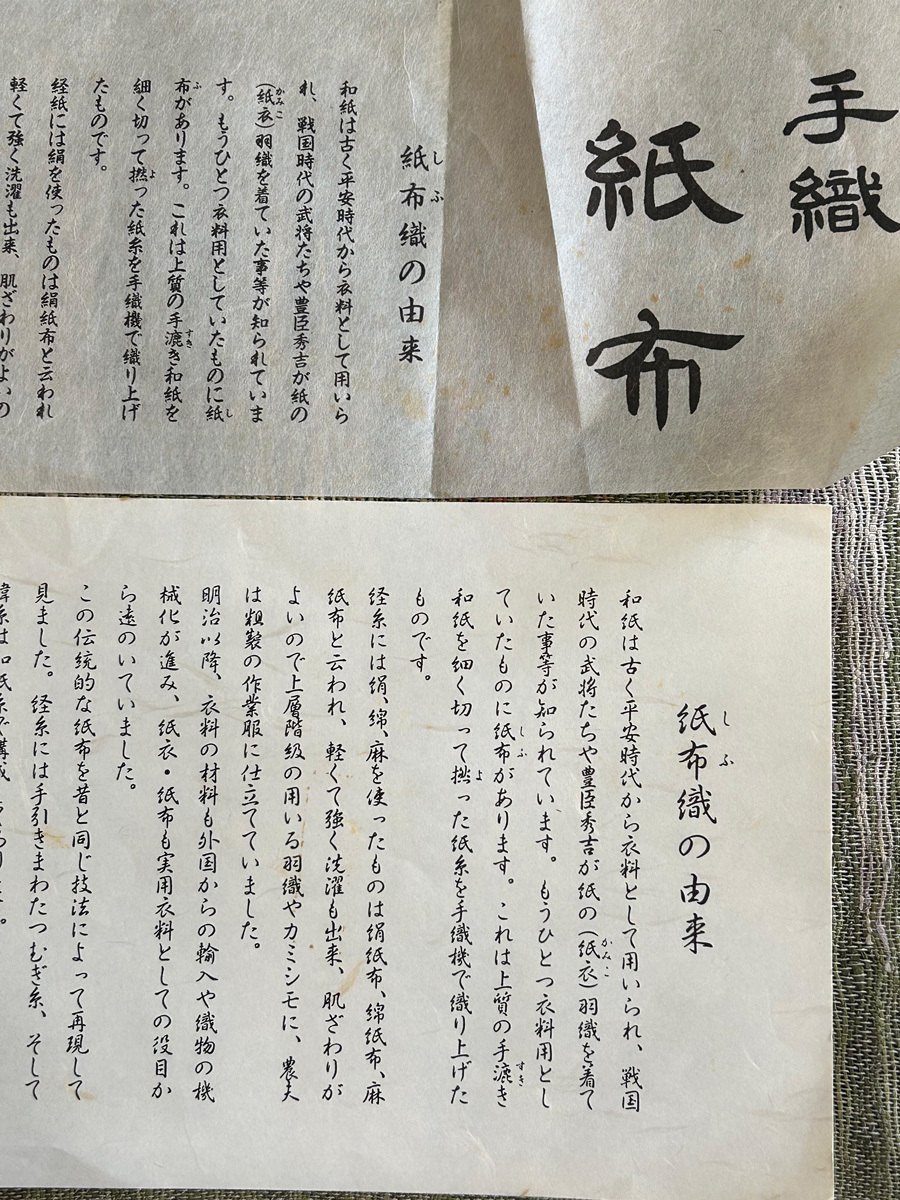 手織
紙布
紙布織の由来
しふ
和紙は古く平安時代から衣料として用いら
れ、戦国時代の武将たちや豊臣秀吉が紙の
(紙衣)羽織を着ていた事等が知られていま
かみこ
す。もうひとつ衣料用としていたものに紙
し
布があります。これは上質の手漉き和紙を
ふ
すき
細く切って撚った紙糸を手織機で織り上げ
よ
たものです。
経紙には絹を使ったものは絹紙布と云われ
軽くて強く洗濯も出来、肌ざわりがよいの
紙布織の由来
しふ
和紙は古く平安時代から衣料として用いられ、戦国
時代の武将たちや豊臣秀吉が紙の(紙衣)羽織を着て
かみこ
いた事等が知られています。もうひとつ衣料用とし
ていたものに紙布があります。これは上質の手漉き
しふ
すき
和紙を細く切って撚った紙糸を手織機で織り上げた
よ
ものです。
経糸には絹、綿、麻を使ったものは絹紙布、綿紙布、麻
紙布と云われ、軽くて強く洗濯も出来、肌ざわりが
よいので上層階級の用いる羽織やカミシモに、農夫
は粗製の作業服に仕立てていました。
明治以降、衣料の材料も外国からの輸入や織物の機
械化が進み、紙衣・紙布も実用衣料としての役目か
ら遠のいていました。
この伝統的な紙布を昔と同じ技法によって再現して
見ました。経糸には手引きまわたつむぎ糸、そして